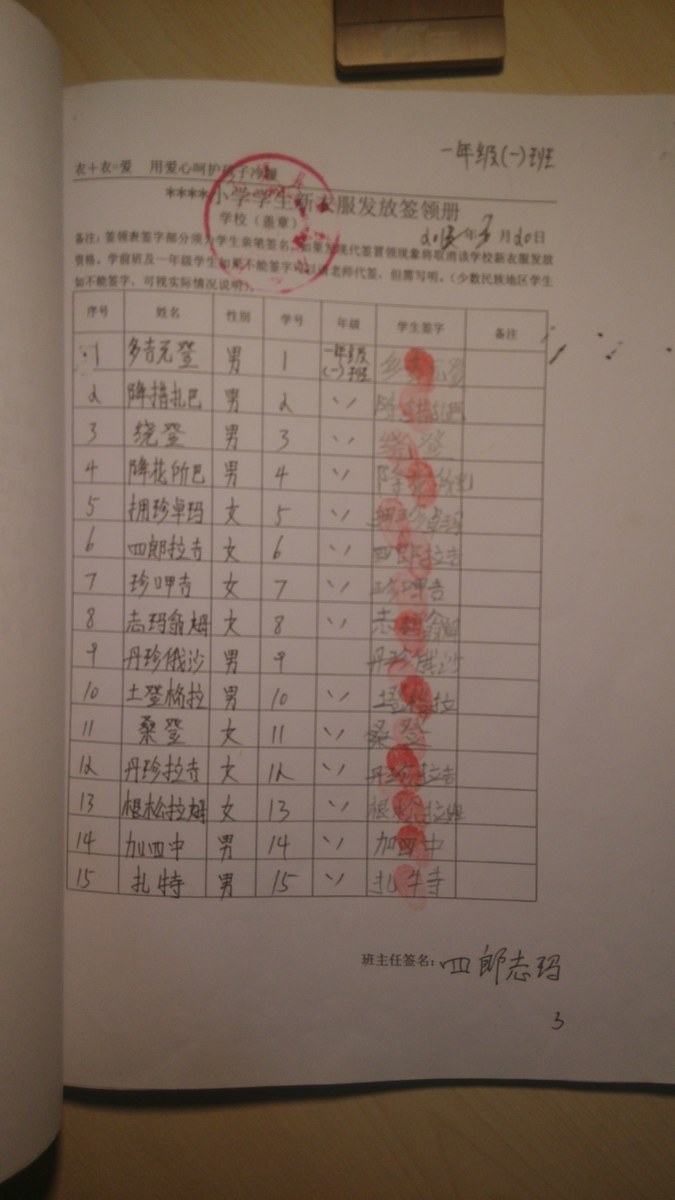 一年级(一)班
衣+衣=爱 用爱心呵护孩子冷暖
****小学学生新衣服发放签领册
学校（盖章） 年 月20日
备注：签领表签字部分须为学生亲笔签名，如果发现代签冒领现象将取消该学校新衣服发放
资格。学前班及一年级学生如果不能签字可以请老师代签，但需写明。（少数民族地区学生
如不能签字，可视实际情况说明）。
序号 姓名 性别 学号 年级 学生签字 备注
1 多吉元登 男 1 一年级(一)班 元登
2 降措扎巴 男 2 〃 降措扎巴
3 绕登 男 3 〃 绕登
4 降花所巴 男 4 〃 降
5 拥珍卓玛 女 5 〃 拥珍卓玛
6 四郎拉寺 女 6 〃 四郎拉寺
7 珍呷寺 女 7 〃 珍呷寺
8 志玛翁姆 女 8 〃 志玛翁姆
9 丹珍俄沙 男 9 丹珍俄沙
10 土登格拉 男 10 〃 土登格拉
11 桑登 女 11 〃 桑登
12 丹珍拉寺 女 12 〃 丹珍拉寺
13 根松拉姆 女 13 〃 根松拉姆
14 加四中 男 14 〃 加四中
15 扎特 男 15 〃 扎特
班主任签名：四郎志玛
3